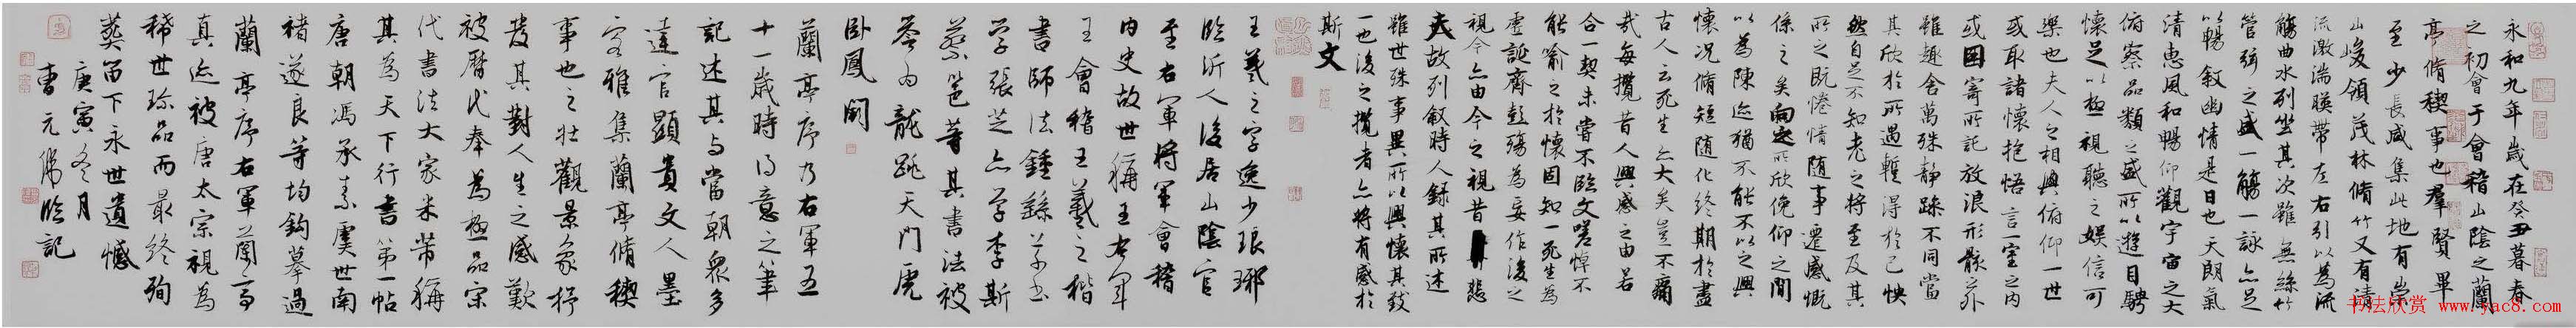 永和九年歲在癸丑暮春
之初會于會稽山陰之蘭
亭脩稧事也羣賢畢
至少長咸集此地有崇
山峻領茂林脩竹又有清
流激湍暎帶左右引以為流
觴曲水列坐其次雖無絲竹
管弦之盛一觴一詠亦足
以暢敘幽情是日也天朗氣
清惠風和暢仰觀宇宙之大
俯察品類之盛所以遊目騁
懷足以極視聽之娛信可
樂也夫人之相與俯仰一世
或取諸懷抱悟言一室之內
或因寄所託放浪形骸之外
雖趣舍萬殊靜躁不同當
其欣於所遇暫得於己怏
然自足不知老之將至及其
所之既惓情隨事遷感慨
係之矣向之所欣俛仰之間
以為陳迹猶不能不以之興
懷況脩短隨化終期於盡
古人云死生亦大矣豈不痛
哉每攬昔人興感之由若
合一契未嘗不臨文嗟悼不
能喻之於懷固知一死生為
虛誕齊彭殤為妄作後之
視今亦由今之視昔悲
夫故列敘時人錄其所述
雖世殊事異所以興懷其致
一也後之攬者亦將有感於
斯文
王羲之字逸少琅琊
臨沂人後居山陰官
至右軍將軍會稽
內史故世稱王右軍
王會稽王羲之楷
書師法鍾繇草書
學張芝亦學李斯
蔡邕等其書法被
譽為龍跳天門虎
卧鳳閣
蘭亭序乃右軍五
十一歲時得意之筆
記述其與當朝眾多
達官顯貴文人墨
客雅集蘭亭脩稧
事也之壯觀景象抒
發其對人生之感歎
被歷代奉為極品宋
代書法大家米芾稱
其為天下行書第一帖
唐朝馮承素虞世南
褚遂良等均鈎摹過
蘭亭序右軍蘭亭
真迹被唐太宗視為
稀世珍品而最終殉
葬留下永世遺憾
庚寅冬月
曹元偉臨記
书法欣赏 www.yac8.com